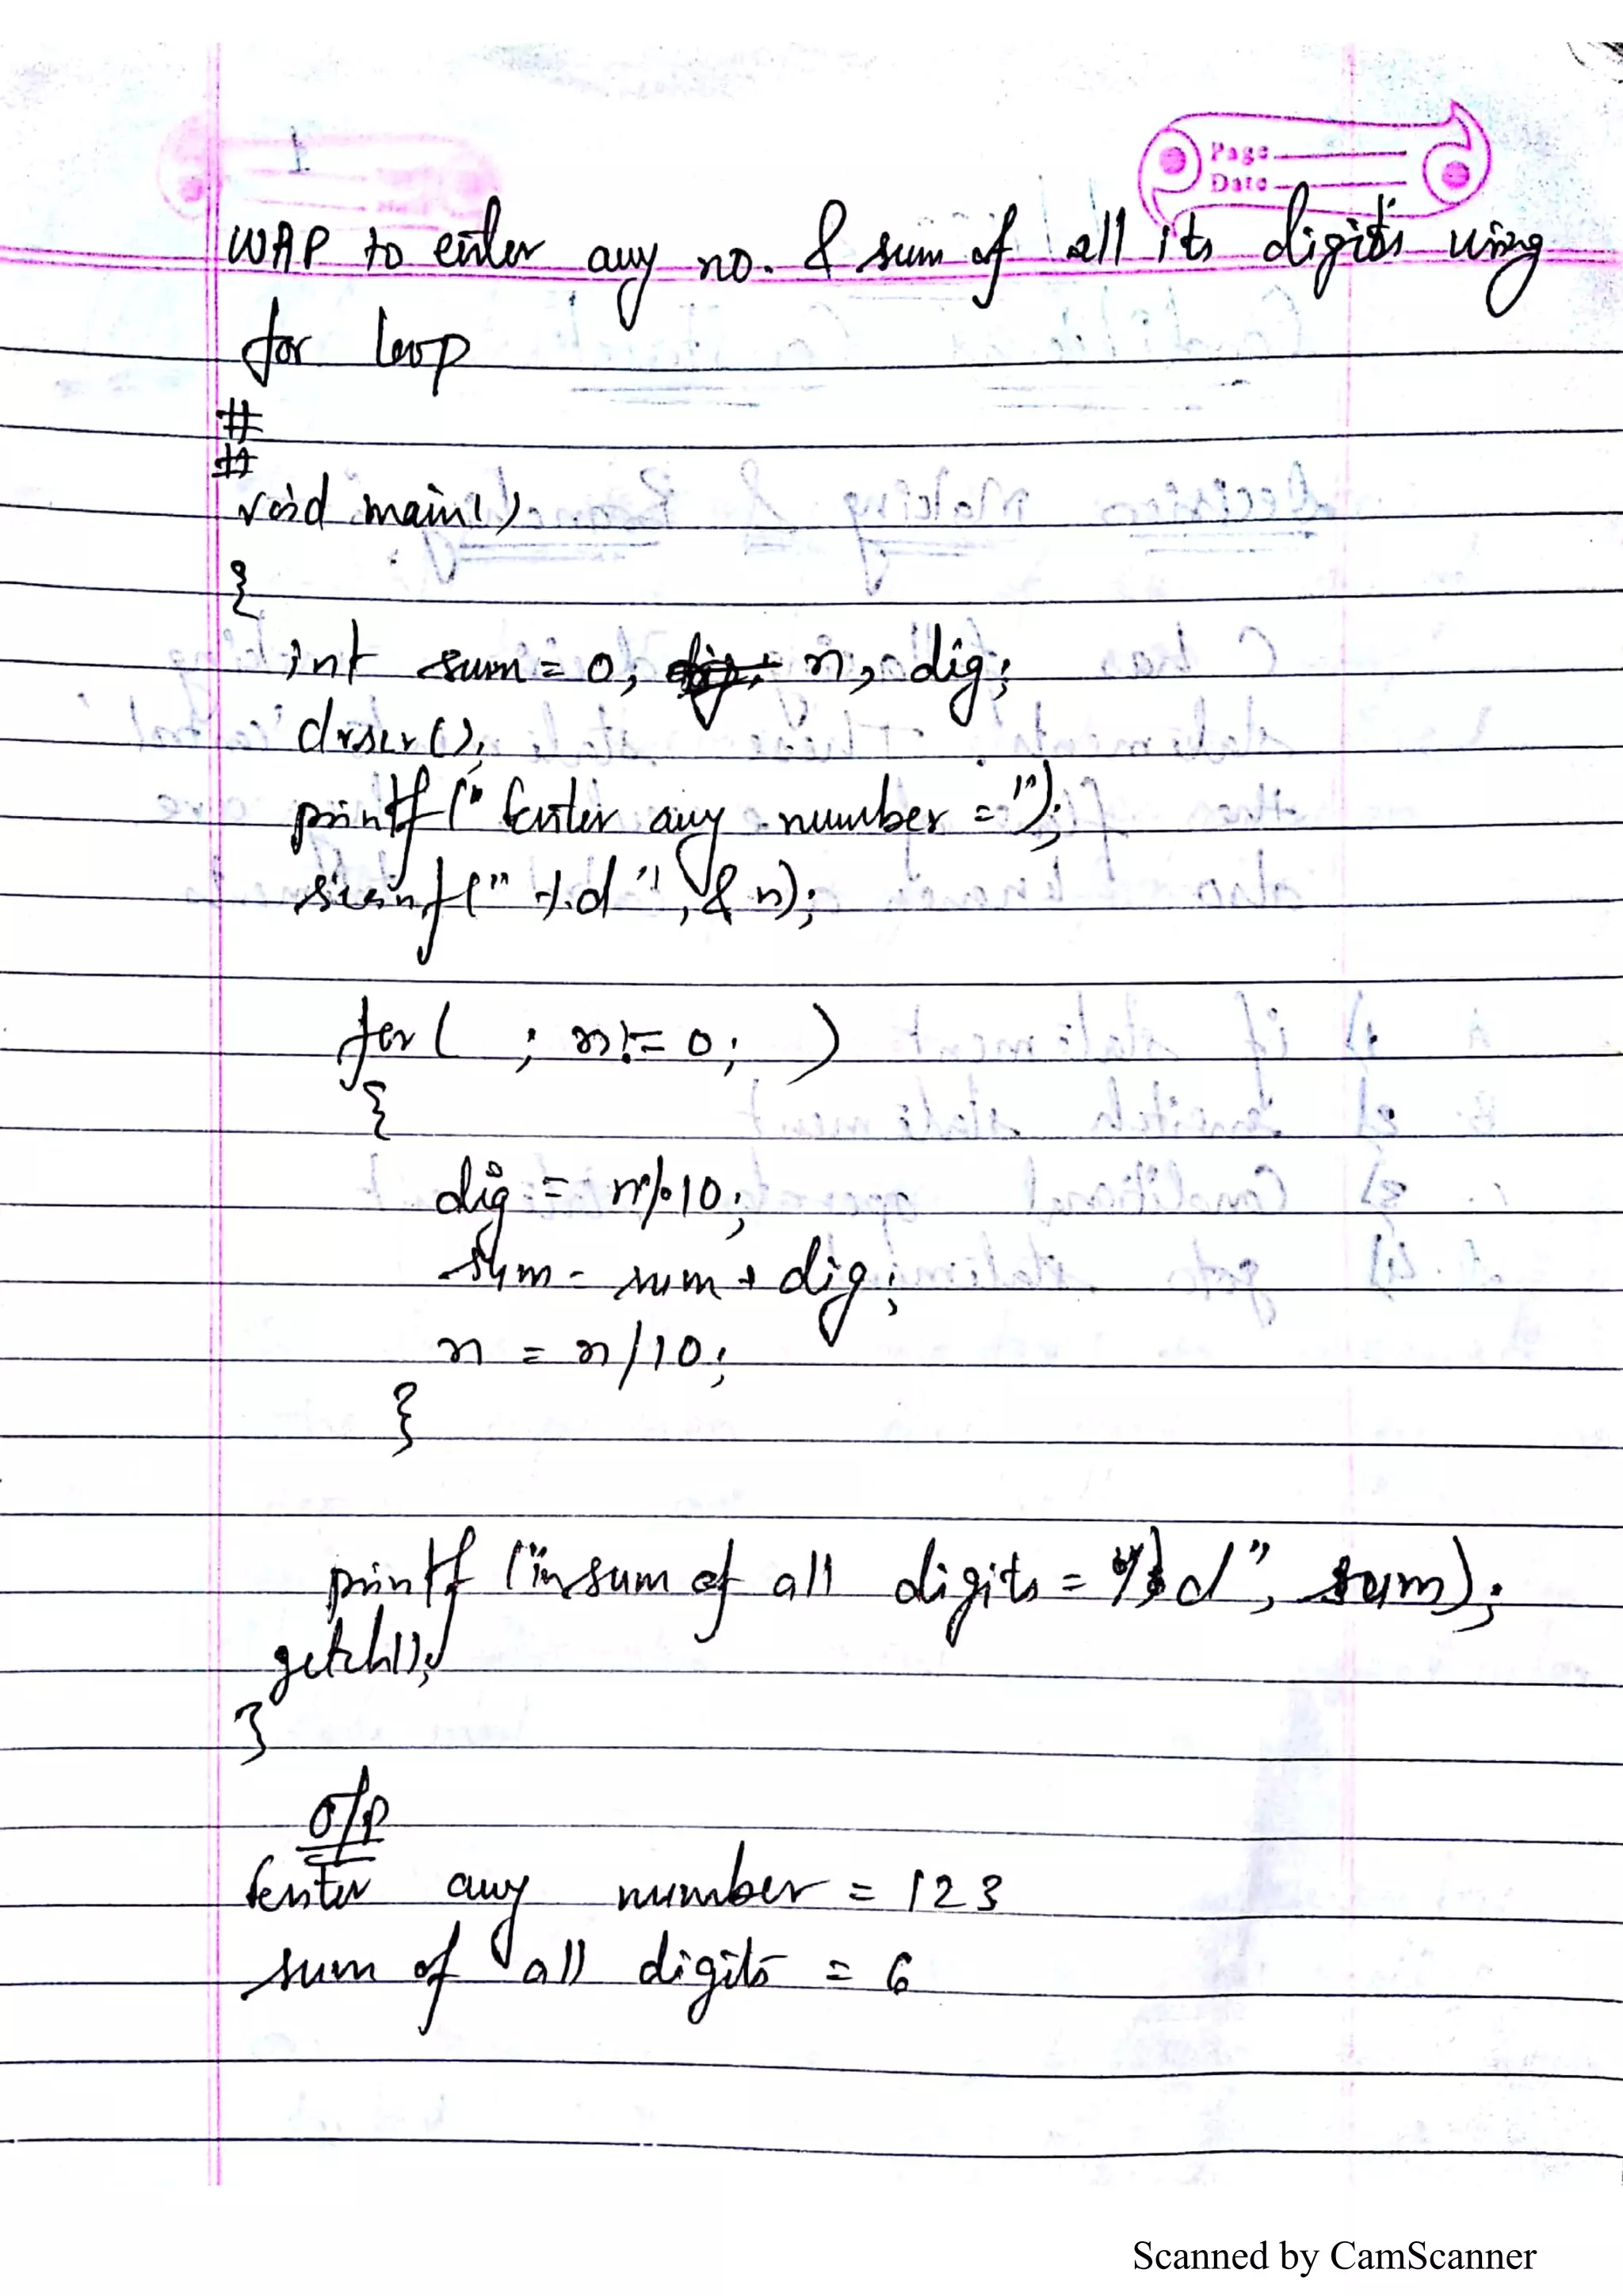 1
Page
Date
WAP to enter any no. & sum of all its digits using
for loop
#
#
void main()
{
int sum = 0, n, dig;
clrscr();
printf(" Enter any number =");
scanf(" %d ", & n);
for( ; n != 0; )
{
dig = n%10;
sum = sum + dig;
n = n/10;
}
printf ("\n sum of all digits = %d", sum);
getch();
}
O/P
Enter any number = 123
sum of all digits = 6
Scanned by CamScanner